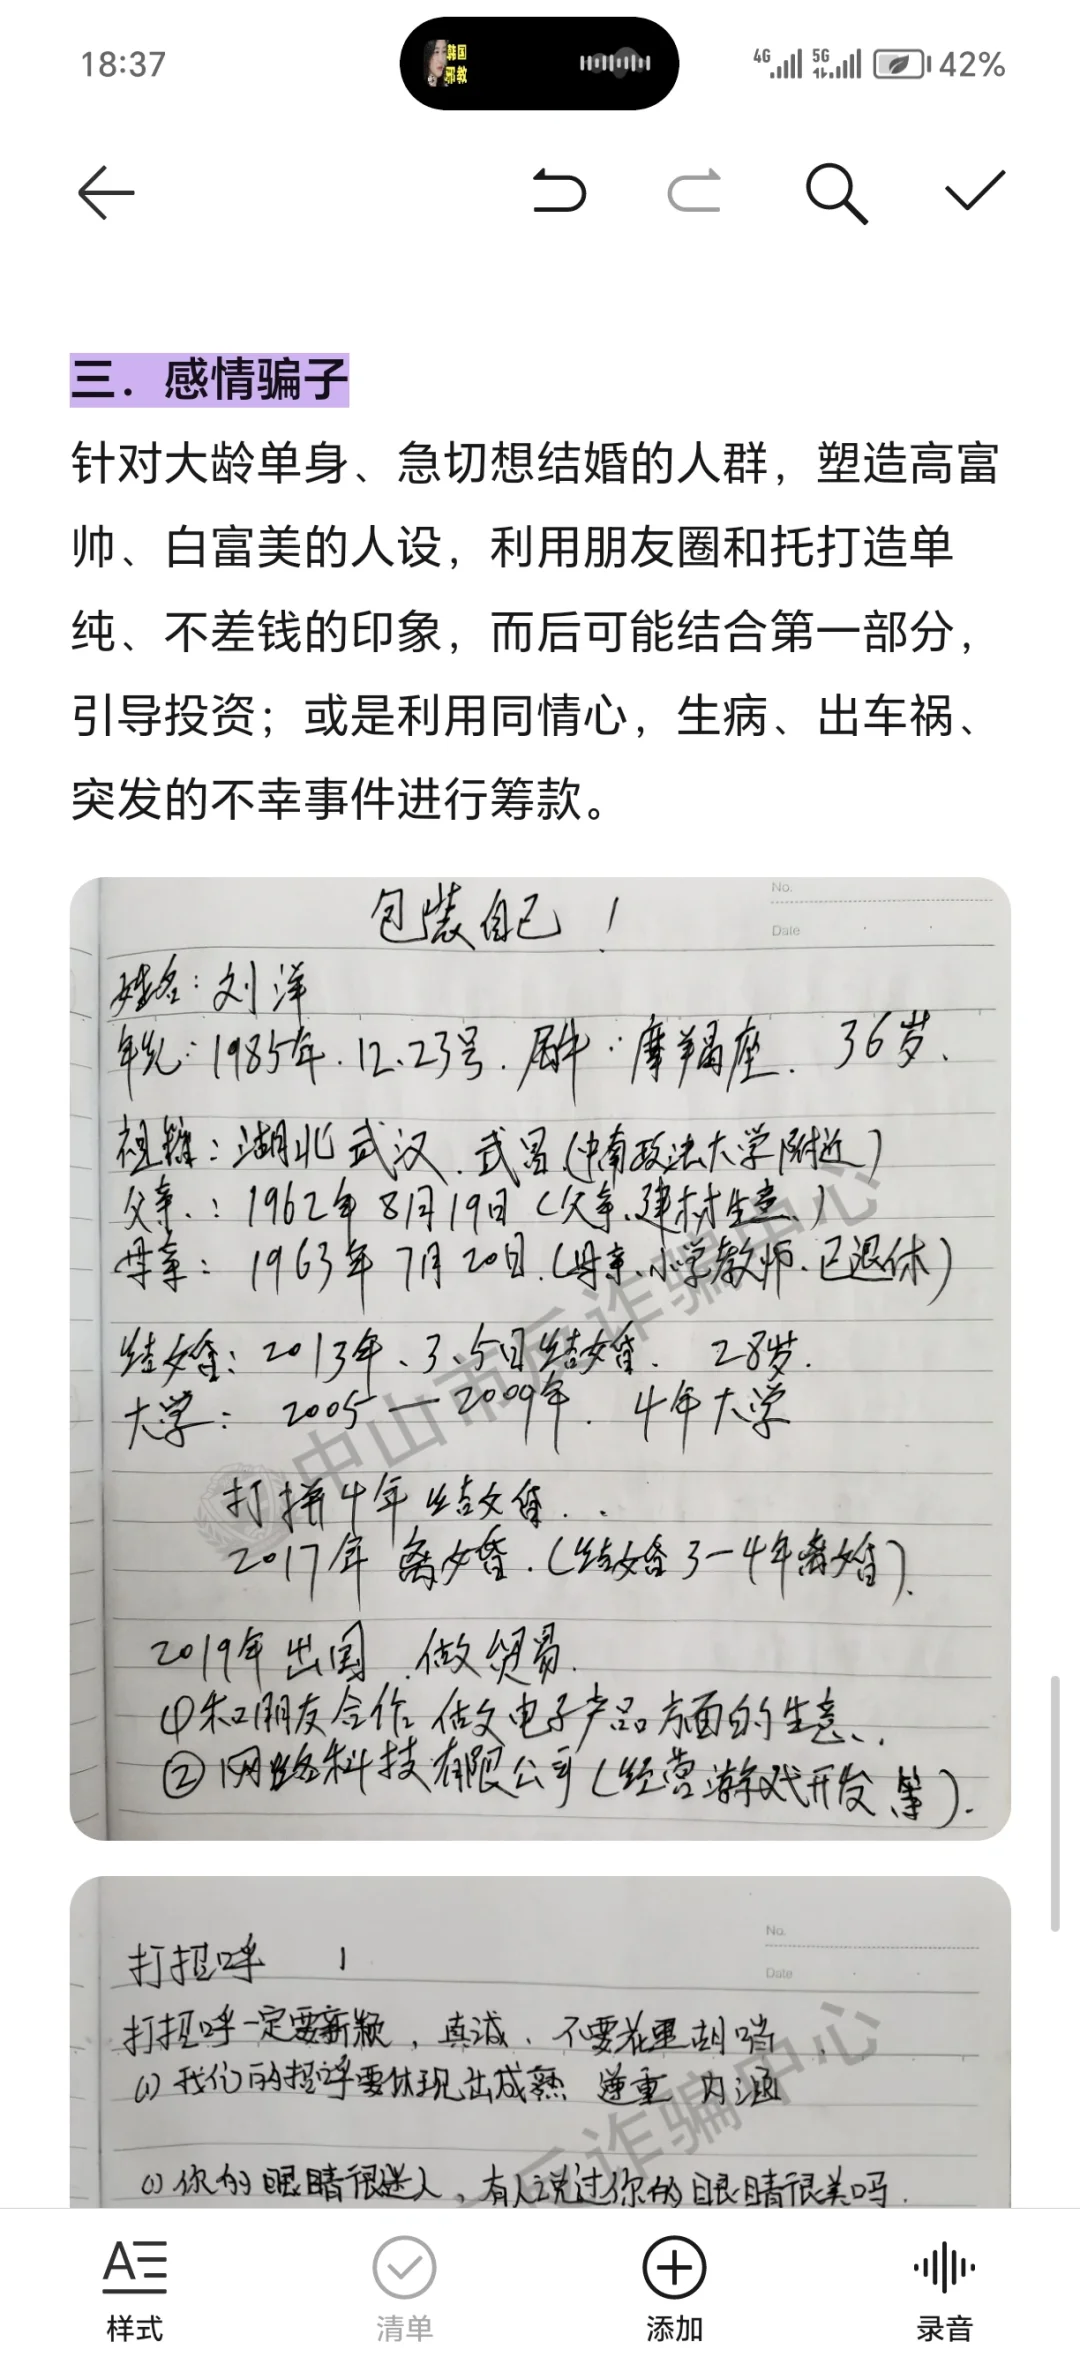 18:37
韩国
邪教
4G 5G 42%
三．感情骗子
针对大龄单身、急切想结婚的人群，塑造高富
帅、白富美的人设，利用朋友圈和托打造单
纯、不差钱的印象，而后可能结合第一部分，
引导投资；或是利用同情心，生病、出车祸、
突发的不幸事件进行筹款。
No.
包装自己！
Date
姓名：刘洋
1985年.12.23号.属牛：摩羯座.36岁.
祖籍：湖北武汉.武昌(中南政法大学附近)
父亲.：1962年8月19日(父亲、建材生意.)
母亲：1963年7月20日.(母亲.小学教师.已退休)
结婚：2013年、3、5日结婚.28岁.
大学：2005—2009年.4年大学
打拼4年结婚..
2017年离婚.(结婚3—4年离婚).
2019年出国.做贸易.
①和朋友合作做电子产品方面的生意、.
②网络科技有限公司(经营游戏开发等).
中山市反诈骗中心
No.
打招呼 1
Date
打招呼一定要新颖，真诚、不要花里胡哨.
(1)我们的招呼要体现出成熟 稳重 内涵
(1)你的眼睛很迷人，有人说过你的眼睛很美吗.
反诈骗中心
样式
清单
添加
录音